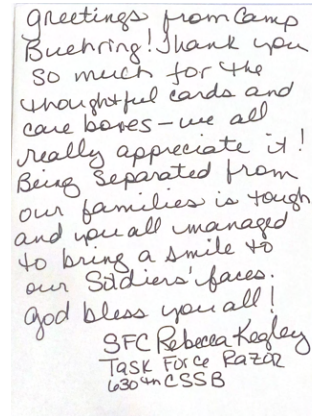 Greetings from Camp
Buehring! Thank you
so much for the
thoughtful cards and
care boxes - we all
really appreciate it!
Being separated from
our families is tough
and you all managed
to bring a smile to
our Soldiers' faces.
God bless you all!
SFC Rebecca Kegley
Task Force Razor
630th CSSB